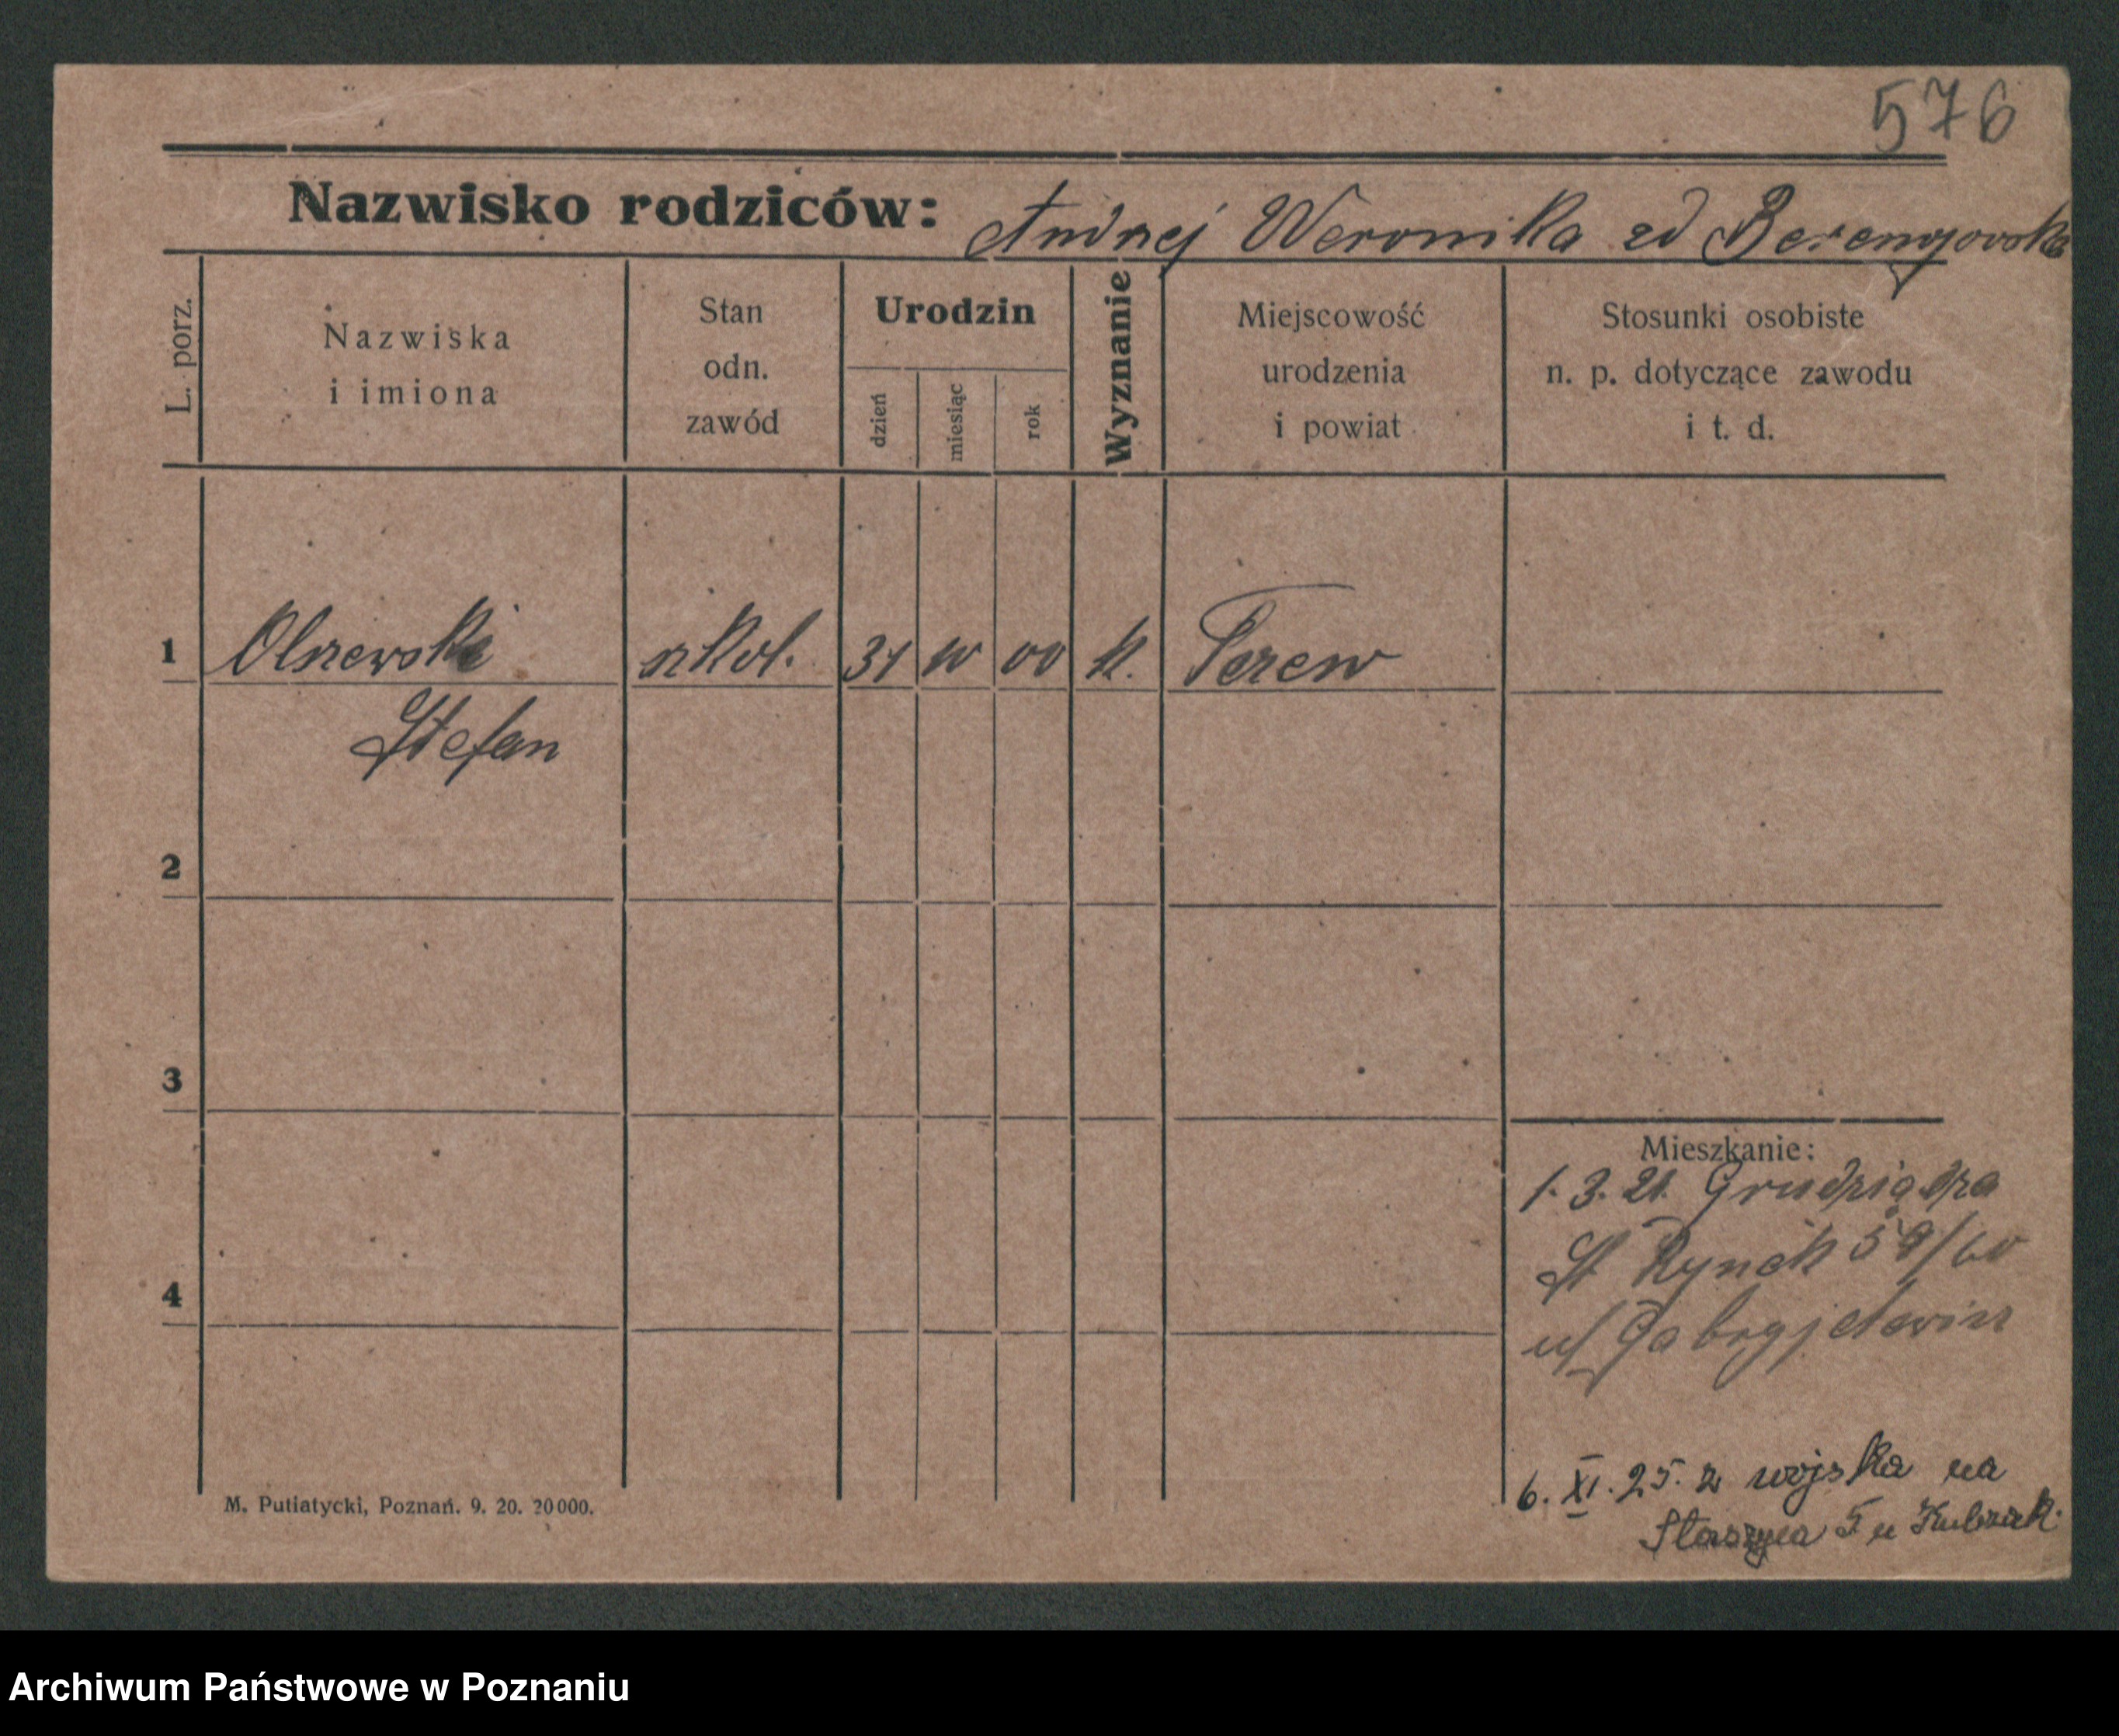 576
Nazwisko rodziców: Andrzej Weronika zd
L. porz.
Nazwiska
i imiona
Stan
odn.
zawód
Urodzin
dzień
miesiąc
rok
Wyznanie
Miejscowość
urodzenia
i powiat
Stosunki osobiste
n. p. dotyczące zawodu
i t. d.
1 Olszewski szkol. 31 10 00 k.
Stefan
2
3
4
Mieszkanie:
1. 3. 21. Grudziądza
St Rynek 59/60
u/
6. XI. 25. z wojska na
Staszyca 5 u
M. Putiatycki, Poznań. 9. 20. 20000.
Archiwum Państwowe w Poznaniu